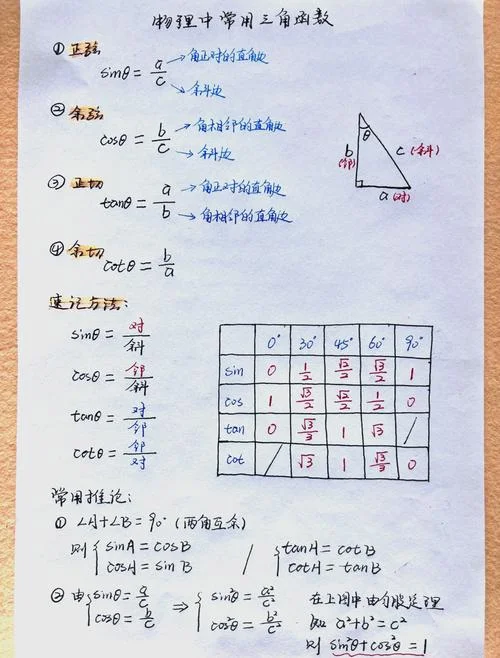 物理中常用三角函数
① 正弦
sinθ = a/c → 角正对的直角边
→ 余斜边
② 余弦
cosθ = b/c → 角相邻的直角边
→ 斜边
③ 正切
tanθ = a/b → 角正对的直角边
→ 角相邻的直角边
④ 余切
cotθ = b/a
θ
b (邻)
c (余斜)
a (对)
速记方法:
sinθ = 对/斜
cosθ = 邻/斜
tanθ = 对/邻
cotθ = 邻/对
0° 30° 45° 60° 90°
sin 0 1/2 √2/2 √3/2 1
cos 1 √3/2 √2/2 1/2 0
tan 0 √3/3 1 √3 /
cot / √3 1 √3/3 0
常用推论:
① ∠A+∠B = 90° (两角互余)
则 { sinA = cosB / { tanA = cotB
cosA = sinB cotA = tanB
② 由 { sinθ = a/c ⇒ { sin²θ = a²/c² 在上图中由勾股定理
cosθ = b/c cos²θ = b²/c² 知 a²+b² = c²
则 sin²θ+cos²θ = 1